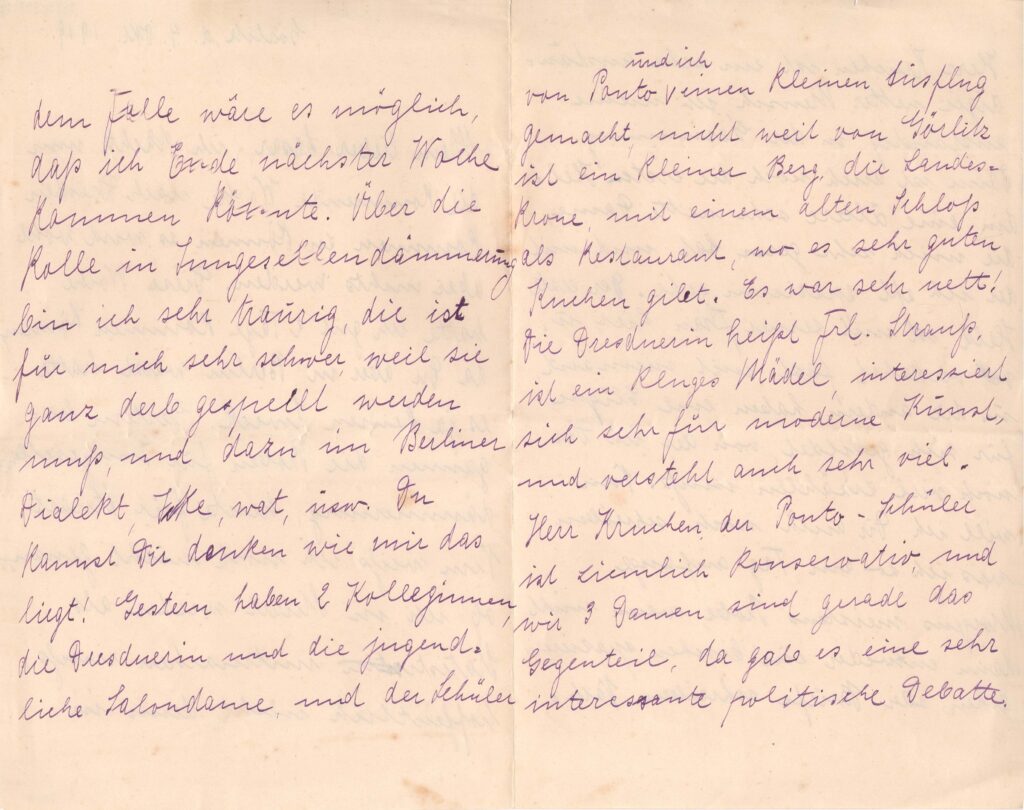 dem Falle wäre es möglich,
daß ich Ende nächster Woche
kommen könnte. Über die
Rolle in Jungesellendämmerung
bin ich sehr traurig, die ist
für mich sehr schwer, weil sie
ganz derb gespellt werden
muß, und dazu im Berliner
Dialekt, Icke, wat, usw. Du
kannst Dir denken wie mir das
liegt! Gestern haben 2 Kolleginnen,
die Dresdnerin und die jugend=
liche Salondame, und der Schüler
und ich
von Ponto einen kleinen Ausflug
gemacht, nicht weit von Görlitz
ist ein kleiner Berg, die Landes=
krone, mit einem alten Schloß
als Restaurant, wo es sehr guten
Kuchen gibt. Es war sehr nett!
Die Dresdnerin heißt Frl. Strauß,
ist ein kluges Mädel, interessiert
sich sehr für moderne Kunst,
und versteht auch sehr viel.
Herr Kruchen, der Ponto-Schüler
ist ziemlich konservativ und
wir 3 Damen sind gerade das
Gegenteil, da gab es eine sehr
interessante politische Debatte.